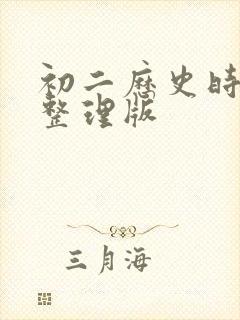 初二历史时
整理版
三月海